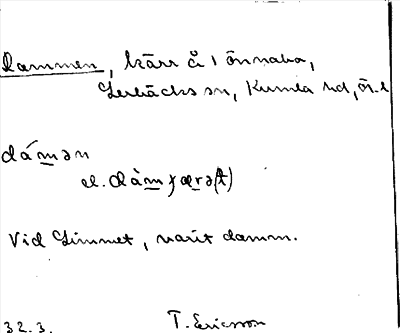 Dammen, kärr å i Önnaba,
Lerbäcks sn, Kumla hd, Ör. l
dámən
el. dàmʃærə(t)
Vid Limmet, varit damm.
32.3. T. Ericsson